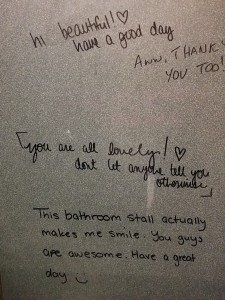 hi beautiful! ♡
have a good day
Aww, THANKS
YOU TOO!
[you are all lovely! ♡
dont let anyone tell you
otherwise]
This bathroom stall actually
makes me smile. You guys
are awesome. Have a great
day :)